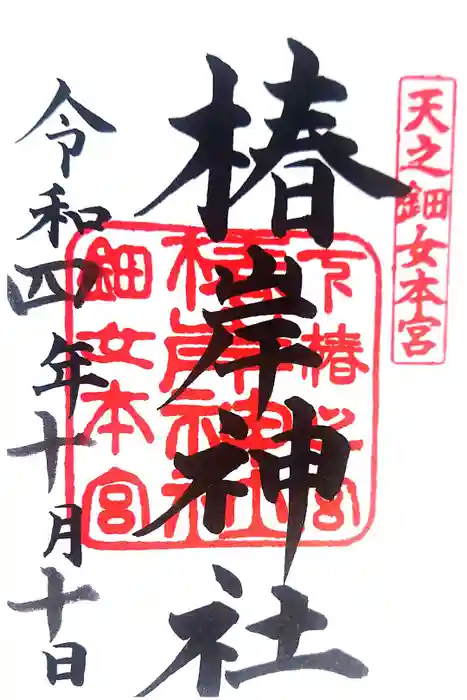 天之鈿女本宮
椿岸神社
令和四年十月十日
椿岸神社
鈿女本宮